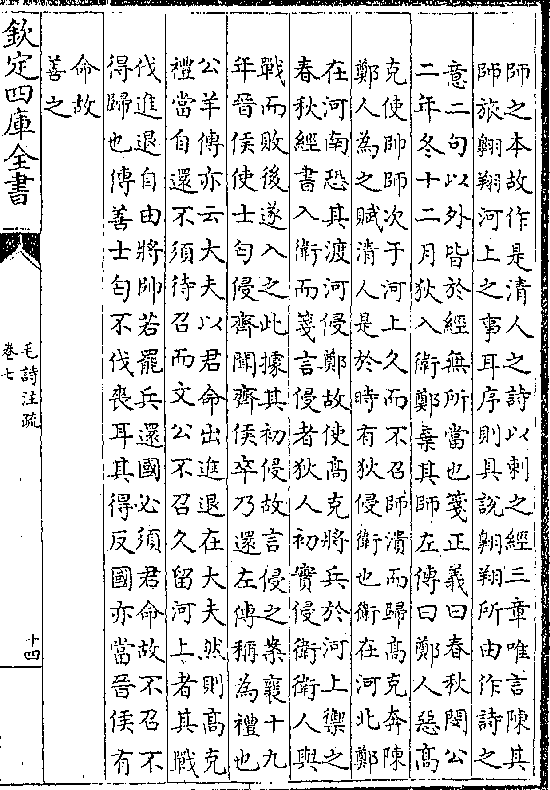 師之本故作是清人之詩以刺之經三章唯言陳其
師旅翱翔河上之事耳序則具說翱翔所由作詩之
意二句以外皆於經無所當也箋正義曰春秋閔公
二年冬十二月狄入衛鄭棄其師左傳曰鄭人惡髙
克使帥師次于河上久而不召師潰而歸髙克奔陳
鄭人為之賦清人是於時有狄侵衛也衛在河北鄭
在河南恐其渡河侵鄭故使髙克將兵於河上禦之
春秋經書入衛而箋言侵者狄人初實侵衛衛人與
戰而敗後遂入之此據其初侵故言侵之案襄十九
年晉侯使士匄侵齊聞齊侯卒乃還左傳稱為禮也
公羊傳亦云大夫以君命出進退在大夫然則髙克
禮當自還不須待召而文公不召久留河上者其戰
伐進退自由將帥若罷兵還國必須君命故不召不
得歸也傳善士匄不伐喪耳其得反國亦當晉侯有
命故
善之
欽定四庫全書
毛詩注疏
卷七
十四